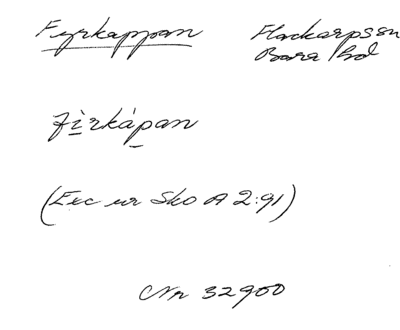 Fyrkappan
Flackarps sn
Bara hd
fìrkápan
(Exc ur Sko A 2:91)
Nr 32900